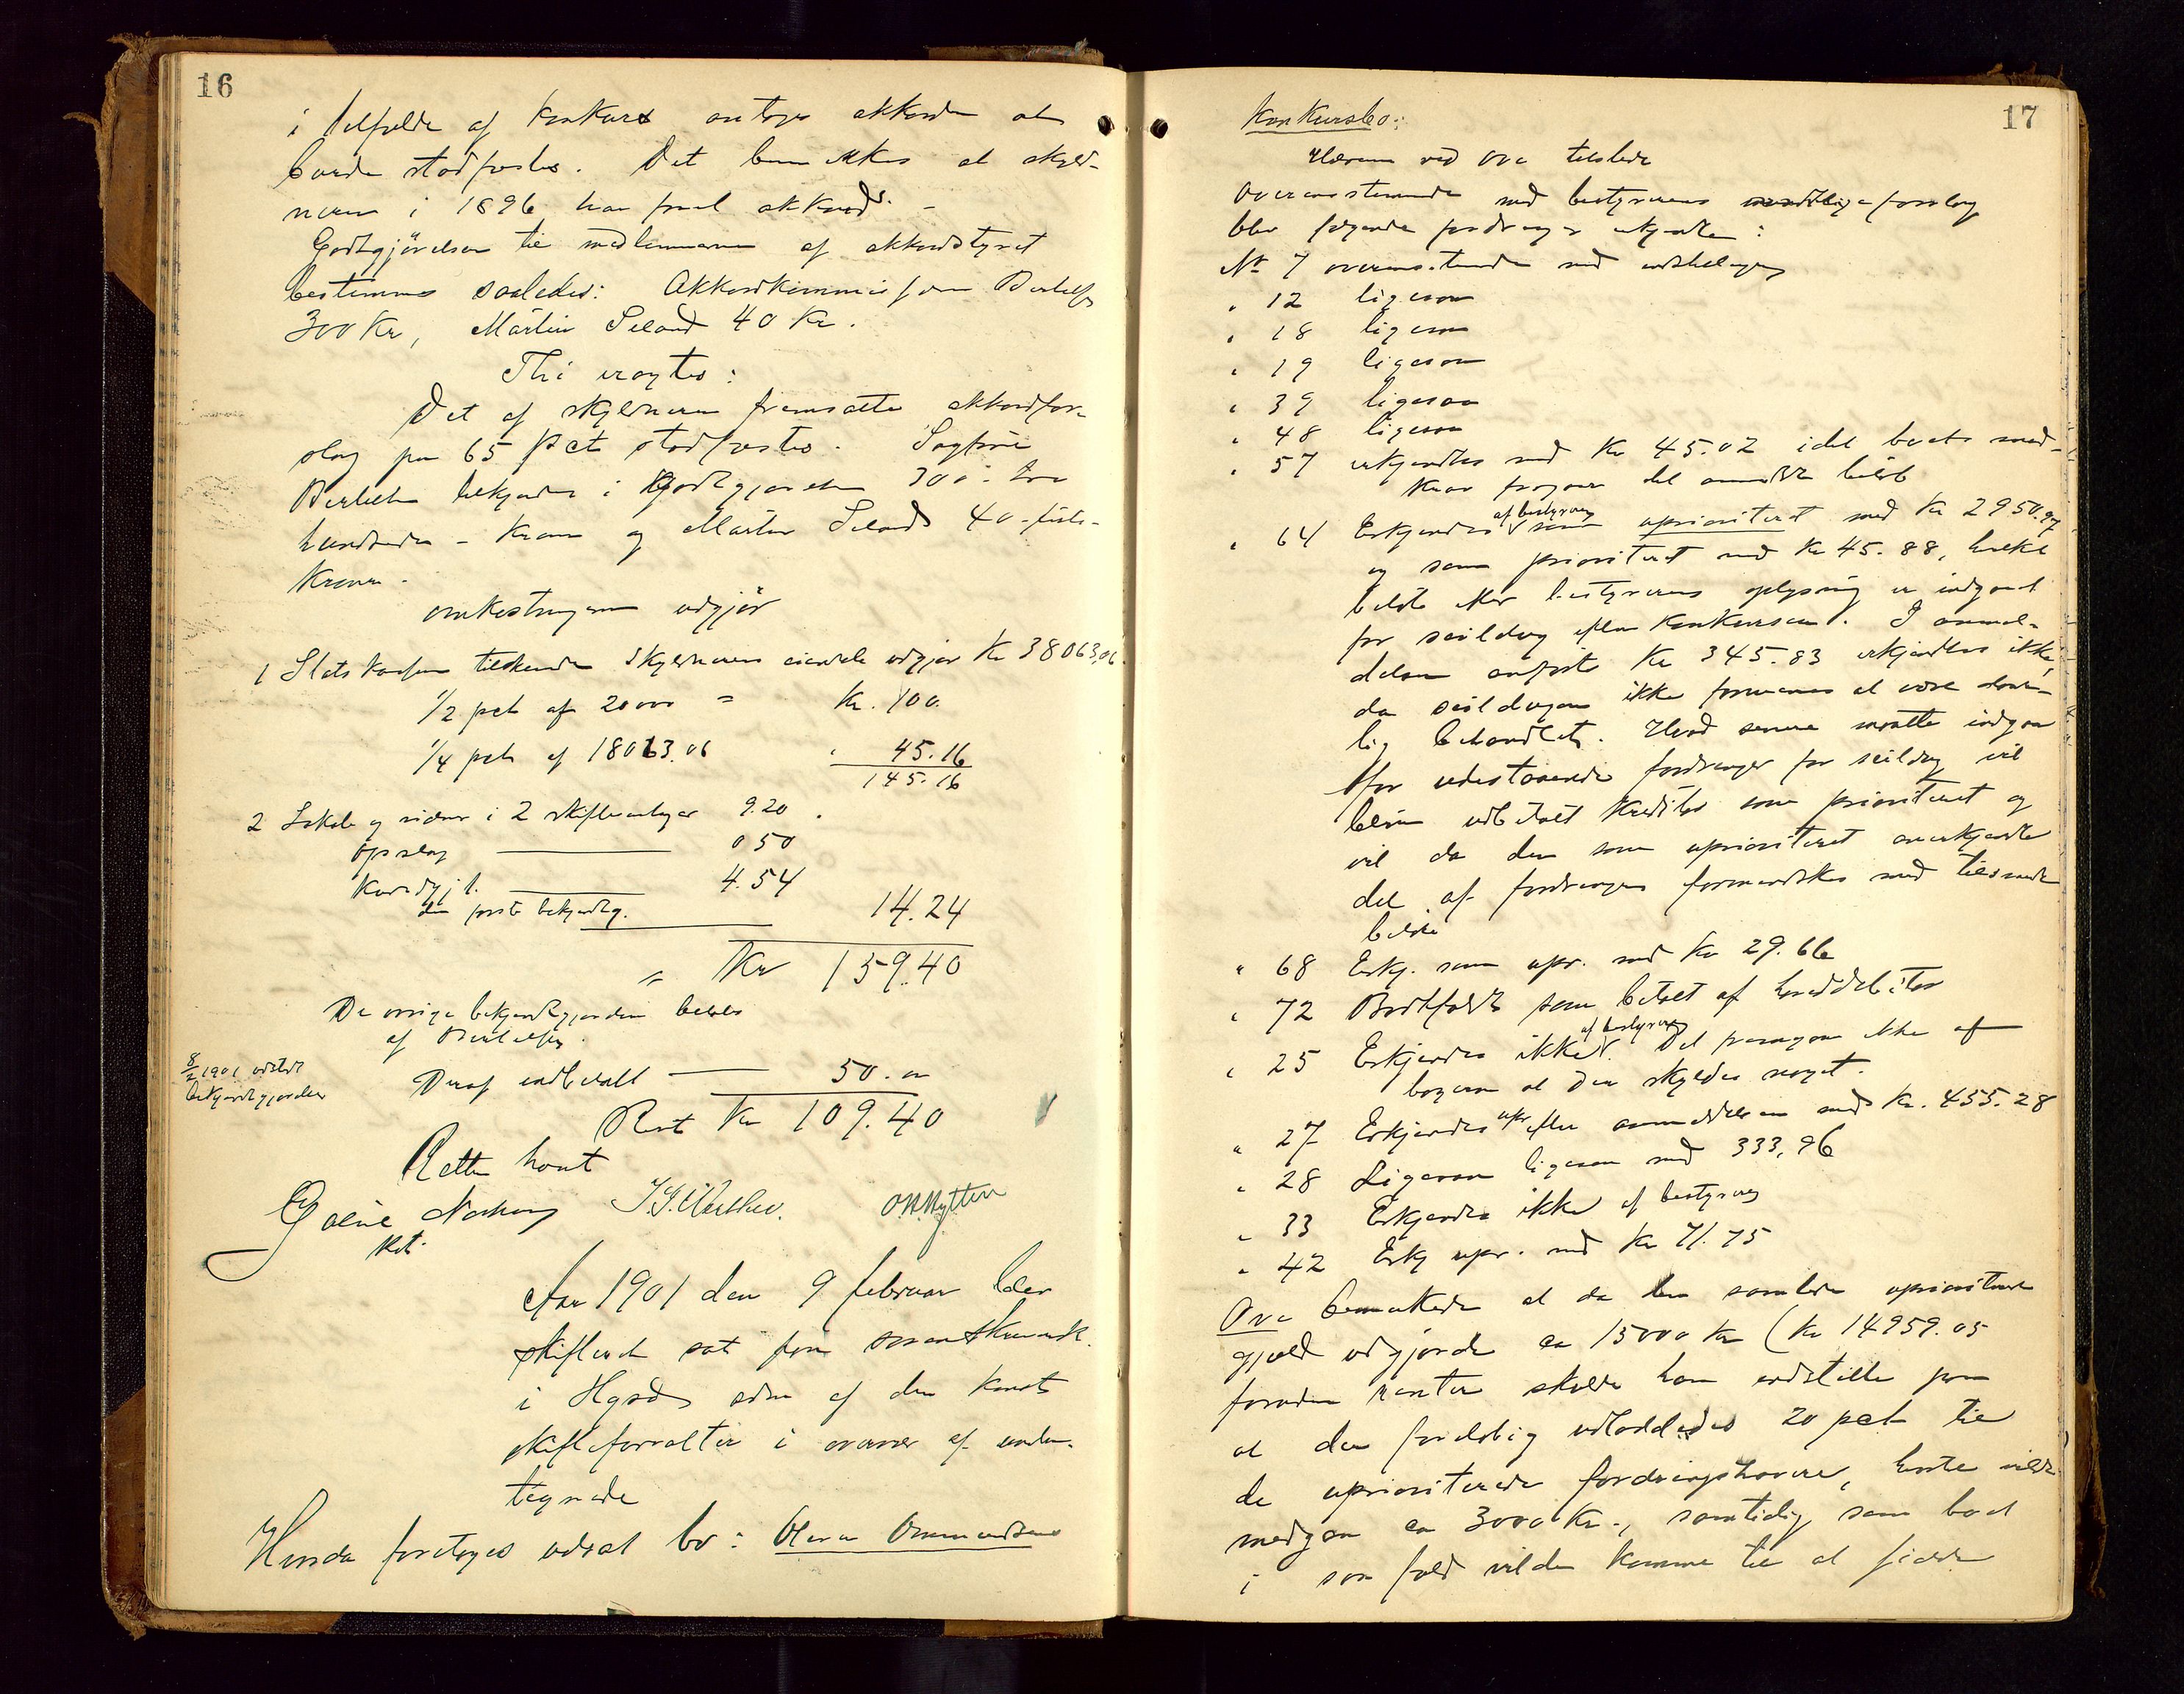 16
i tilfælde af konkurs antoges akkorden at
burde stadfæstes. Det bemerkes at skyld-
neren i 1896 har faaet akkord. -
Godtgjørelsen til medlemmerne af akkordstyret
bestemmes saaledes: Akkordkommissær Bertelsen
300 Kr, Martin Seland 40 Kr.
Thi eragtes:
Det af skyldneren fremsatte akkordfor-
slag paa 65 pct stadfæstes. Sagfører
Bertelsen tilkjendes i Godtgjørelse 300 - tre
hundrede - Kroner og Martin Seland 40 - firti -
Kroner.
omkostningerne udgjør
1 Statskassen tilkommer Skyldnerens eiendele udgjør Kr 38063,06
1/2 pct af 20000 = Kr. 100.
1/4 pct af 18063.06 " 45.16
145.16
2 Lokale og vidner i 2 skiftesamlinger 9.20.
Opslag 0 50
Kundgj. 4.54
den første bekjendtg.
14.24
= Kr 159.40
De øvrige bekjendtgjørelser betales
af Bertelsen.
8/2 1901 udstedt
bekjendtgjørelse
Deraf indbetalt 50.00
Rest Kr 109.40
Retten hævet
Aar 1901 den 9 februar blev
skifteret sat paa sorenskriverk.
i Hgsd adm af den konst
skifteforvalter i overvær af under-
tegnede
Hvorda foretoges udsat bo: Ommundsens
17
Konkursbo:
Herunder var Ove tilstede
Overensstemmende med bestyrerens forslag
blev følgende fordringer erkjendte:
No 7 overensstemmende med
" 12 ligesaa
" 18 ligesaa
" 19 ligesaa
" 39 ligesaa
" 48 ligesaa
" 57 erkjendtes med Kr 45.02 idet boets mod-
krav fragaar det anmeldte beløb
" 64 Erkjendes af bestyrer som uprioriteret med Kr 2950.97
og som prioriteret med Kr 45.88, hvilket
beløb efter bestyrerens oplysning er indgaaet
for seildug efter konkursen. I anmel-
delsen anførte Kr 345.83 erkjendtes ikke,
da seildugen ikke formenes at være
lig behandlet. Hvad senere maatte indgaa
for udestaaende fordringer for seildug vil
blive udbetalt Kreditor som prioriteret og
vil da den som uprioriteret anerkjendte
del af fordringen formindskes med tilsvarende
beløb
" 68 Erkj. som upr. med Kr 29.66
" 72 Bortfaldt som betalt af hoveddebitor
" 25 Erkjendes ikke af bestyrer. Det fremgaar ikke af
bøgerne at der skyldes noget.
" 27 Erkjendes upr efter anmeldelsen med Kr. 455.28
" 28 Ligesaa ligesaa med 333,96
" 33 Erkjendes ikke af bestyrer
" 42 Erkj upr. med Kr 71.75
Ove bemerkede at da den samlede uprioriterede
gjæld udgjørde ca 15000 Kr (Kr 14959.05
foruden renter skulde han indstille paa
at der foreløbig udloddedes 20 pct til
de uprioriterede fordringshavere, hvortil vilde
medgaa ca 3000 Kr., samtidig som boet
i saa fald vilde komme til at sidde